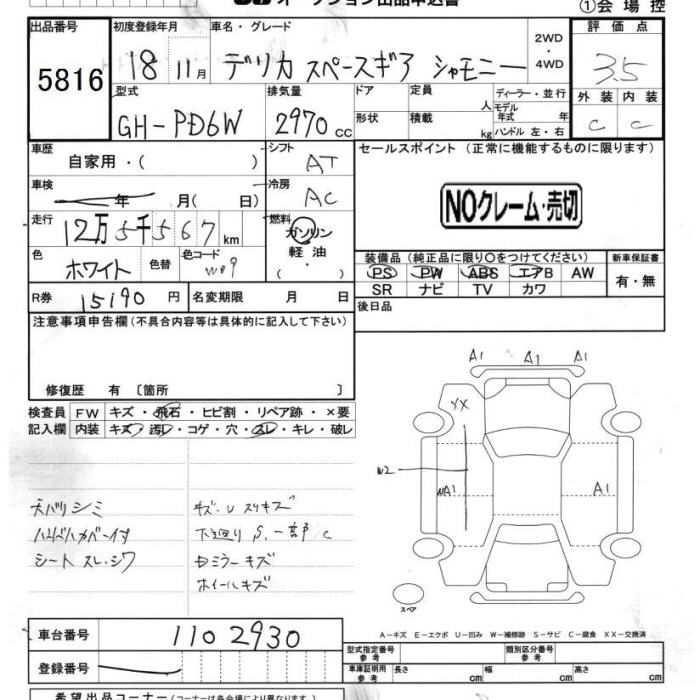 ①会場控
出品番号
5816
初度登録年月
18 11月
車名・グレード
デリカ スペースギア シャモニー
2WD
・
4WD
評価点
3.5
外装 内装
C C
型式
GH-PD6W
排気量
2970 CC
ドア
形状
定員
人
積載
kg
ディーラー・並行
モデル
年式 年
ハンドル 左・右
車歴
自家用・( )
シフト
AT
セールスポイント (正常に機能するものに限ります)
NOクレーム・売切
車検
年 月( 日)
冷房
AC
走行
12万5千567 km
燃料
ガソリン
軽油
( )
色
ホワイト
色替
色コード
W09
装備品(純正品に限り○をつけてください)
PS PW ABS エアB AW
SR ナビ TV カワ
新車保証書
有・無
R券 15190 円
名変期限 月 日
後日品
注意事項申告欄(不具合内容等は具体的に記入して下さい)
修復歴 有 〔箇所 〕
検査員
記入欄
FW キズ・飛石・ヒビ割・リペア跡・×要
内装 キズ・汚レ・コゲ・穴・スレ・キレ・破レ
天バリシミ
ハンドルカバー付
シートスレ・シワ
キズ・U スリキズ
下廻り S、一部 C
Dミラーキズ
ホイールキズ
A1 A1 A1
XX
W2
A1
スペア
A-キズ E-エクボ U-凹み W-補修跡 S-サビ C-腐食 XX-交換済
車台番号
1102930
登録番号
型式指定番号
参考
類別区分番号
参考
車庫証明用
参考
長さ cm 幅 cm 高さ cm
希望出品コーナー(コーナーは各会場により異なります)